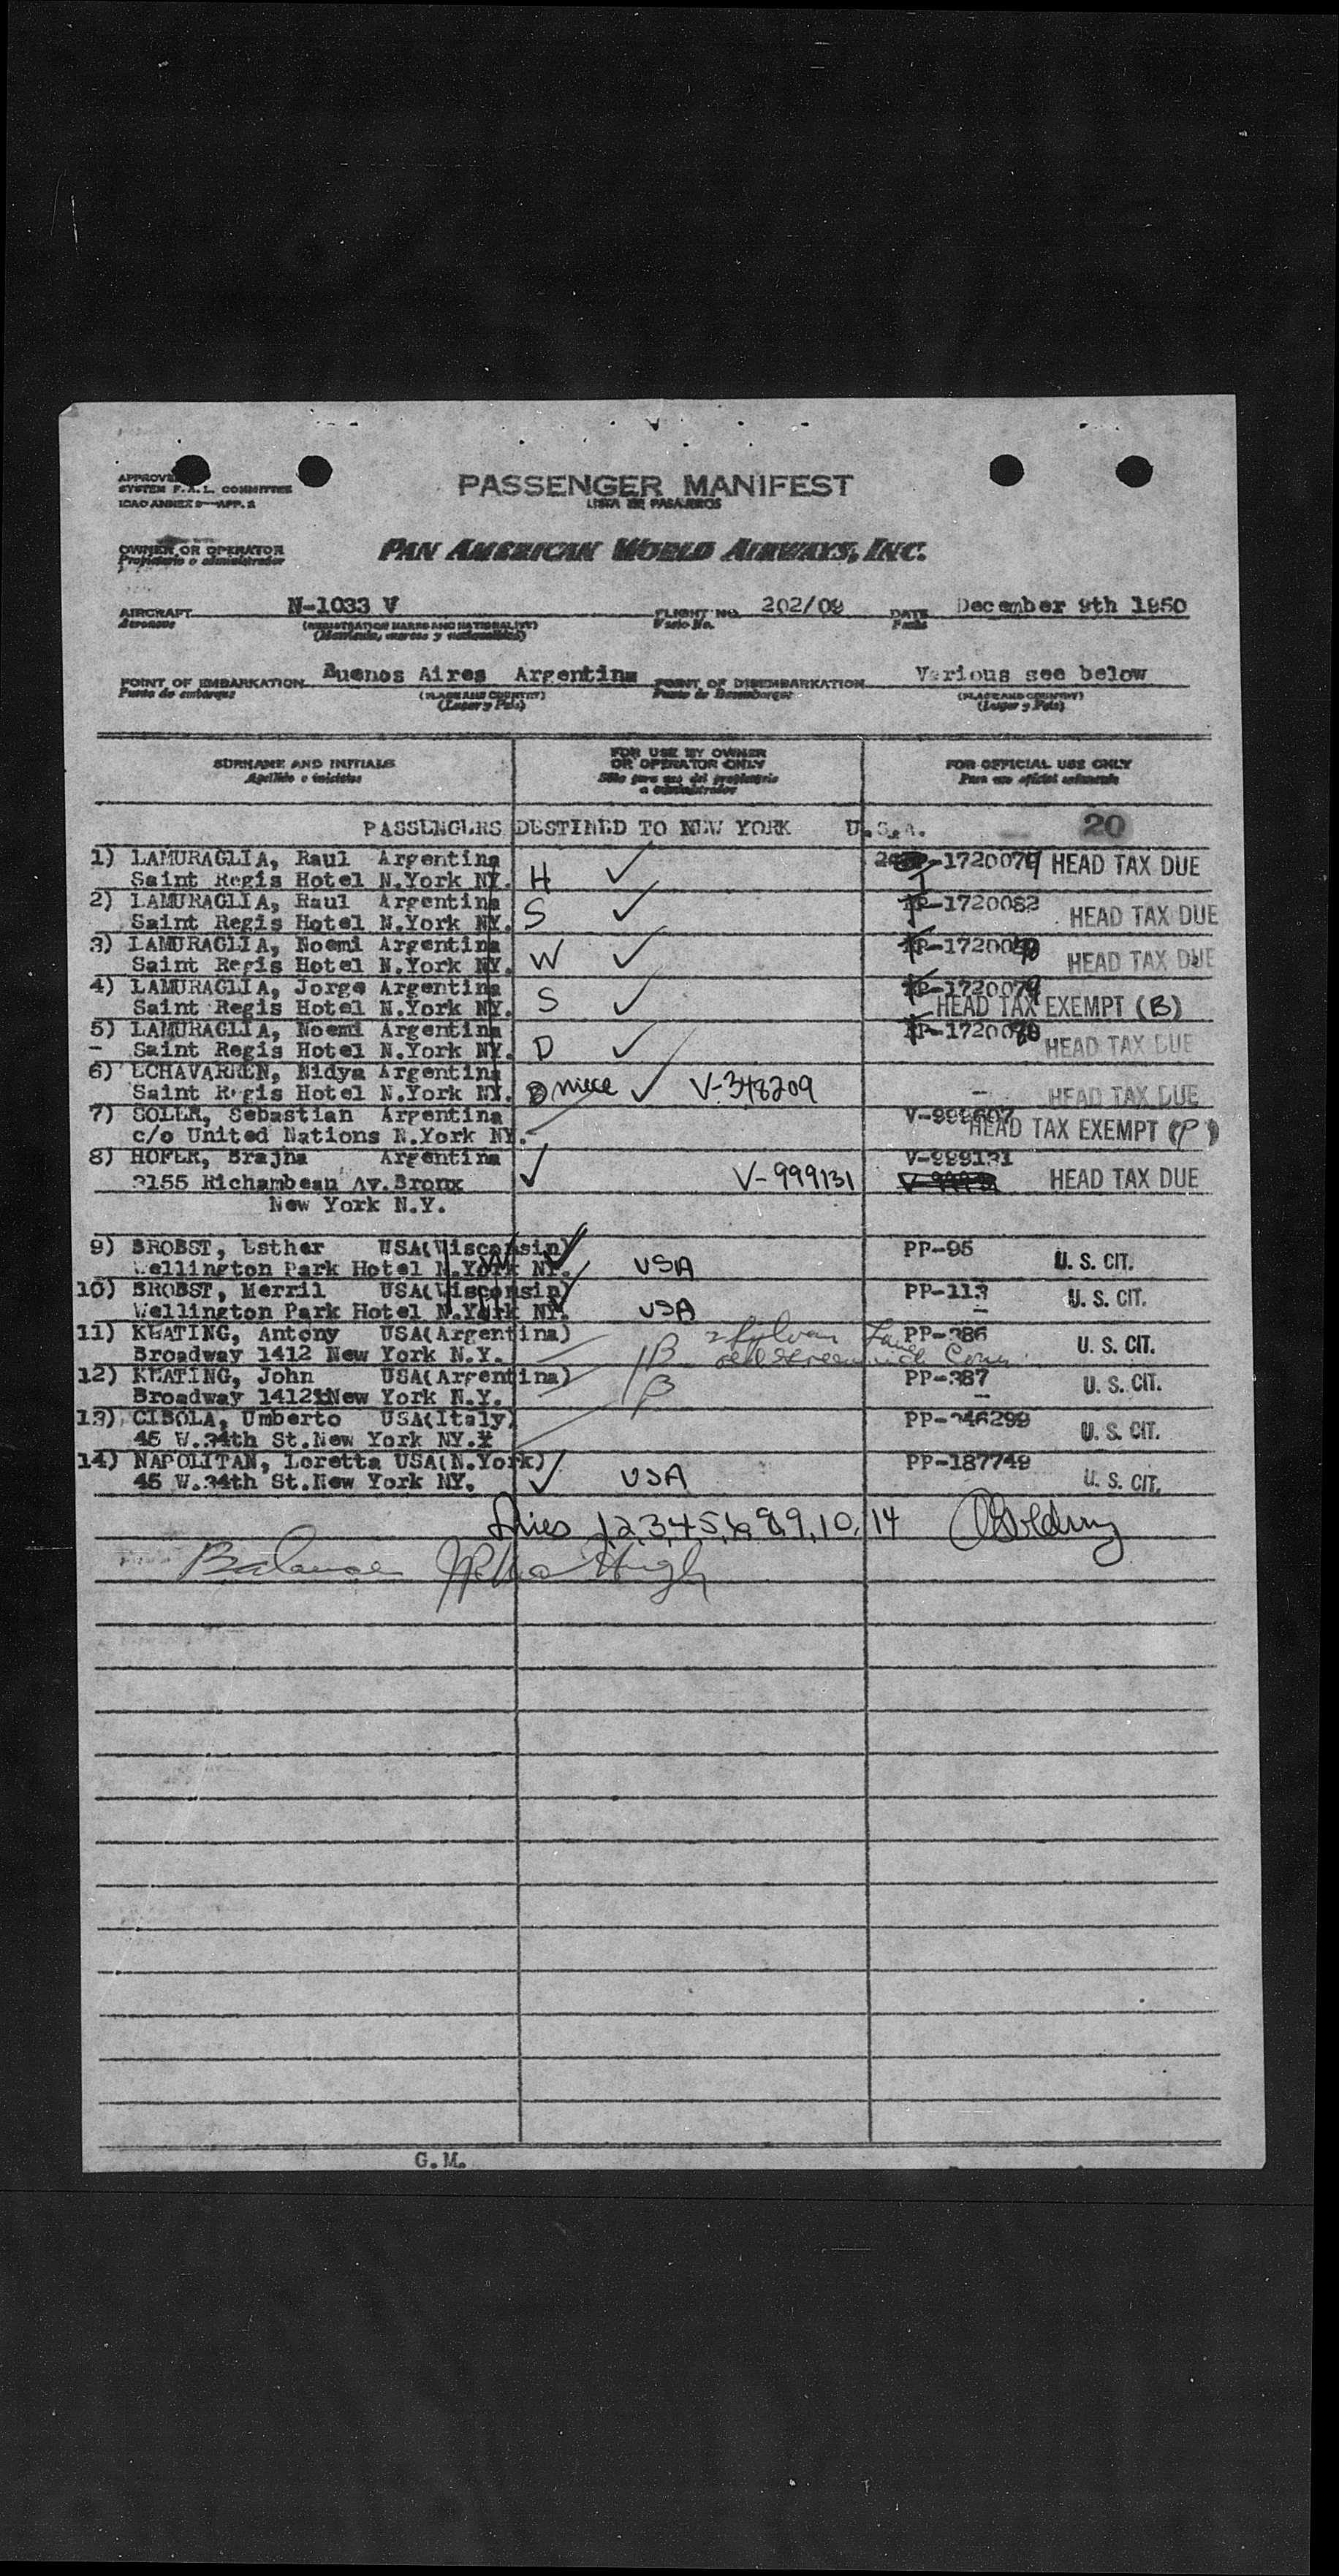 APPROVED
SYSTEM F.A.L. COMMITTEE
ICAO ANNEX 9—APP. 2
PASSENGER MANIFEST
LISTA DE PASAJEROS
OWNER OR OPERATOR
Propietario o administrador
PAN AMERICAN WORLD AIRWAYS, INC.
AIRCRAFT N-1033 V FLIGHT NO. 202/09 DATE December 9th 1950
Aeronave (REGISTRATION MARKS AND NATIONALITY) Vuelo No. Fecha
(Matrícula, marcas y nacionalidad)
POINT OF EMBARKATION Buenos Aires Argentina POINT OF DISEMBARKATION Various see below
Punto de embarque (PLACE AND COUNTRY) Punto de Desembarque (PLACE AND COUNTRY)
(Lugar y País) (Lugar y País)
SURNAME AND INITIALS FOR USE BY OWNER OR OPERATOR ONLY FOR OFFICIAL USE ONLY
Apellido e iniciales Sólo para uso del propietario o administrador Para uso oficial solamente
PASSENGERS DESTINED TO NEW YORK U.S.A. 20
1) LAMURAGLIA, Raul Argentina ✓ -1720079 HEAD TAX DUE
Saint Regis Hotel N.York NY. H
2) LAMURAGLIA, Raul Argentina ✓ -1720082 HEAD TAX DUE
Saint Regis Hotel N.York NY. S
3) LAMURAGLIA, Noemi Argentina ✓ HEAD TAX DUE
Saint Regis Hotel N.York NY. W
4) LAMURAGLIA, Jorge Argentina ✓ -1720079
Saint Regis Hotel N.York NY. S HEAD TAX EXEMPT (B)
5) LAMURAGLIA, Noemi Argentina ✓
Saint Regis Hotel N.York NY. D HEAD TAX DUE
6) ECHAVARREN, Nidya Argentina
Saint Regis Hotel N.York NY. niece ✓ V-348209 HEAD TAX DUE
7) SOLER, Sebastian Argentina V-999607
c/o United Nations N.York NY. HEAD TAX EXEMPT (P)
8) HOFER, Brajna Argentina V-999131
3155 Richambeau Av.Bronx ✓ V-999131 HEAD TAX DUE
New York N.Y.
9) BROBST, Esther USA(Wisconsin) PP-95
Wellington Park Hotel N.York NY. USA U. S. CIT.
10) BROBST, Merril USA(Wisconsin) PP-113
Wellington Park Hotel N.York NY. USA U. S. CIT.
11) KEATING, Antony USA(Argentina) PP-386
Broadway 1412 New York N.Y. B U. S. CIT.
12) KEATING, John USA(Argentina) PP-387
Broadway 1412 New York N.Y. B U. S. CIT.
13) CIBOLA, Umberto USA(Italy) PP-346299
45 W.34th St.New York NY. U. S. CIT.
14) NAPOLITAN, Loretta USA(N.York) PP-187749
45 W.34th St.New York NY. ✓ USA U. S. CIT.
Lines 1,2,3,4,5,6,8,9,10,14
Balance
G.M.